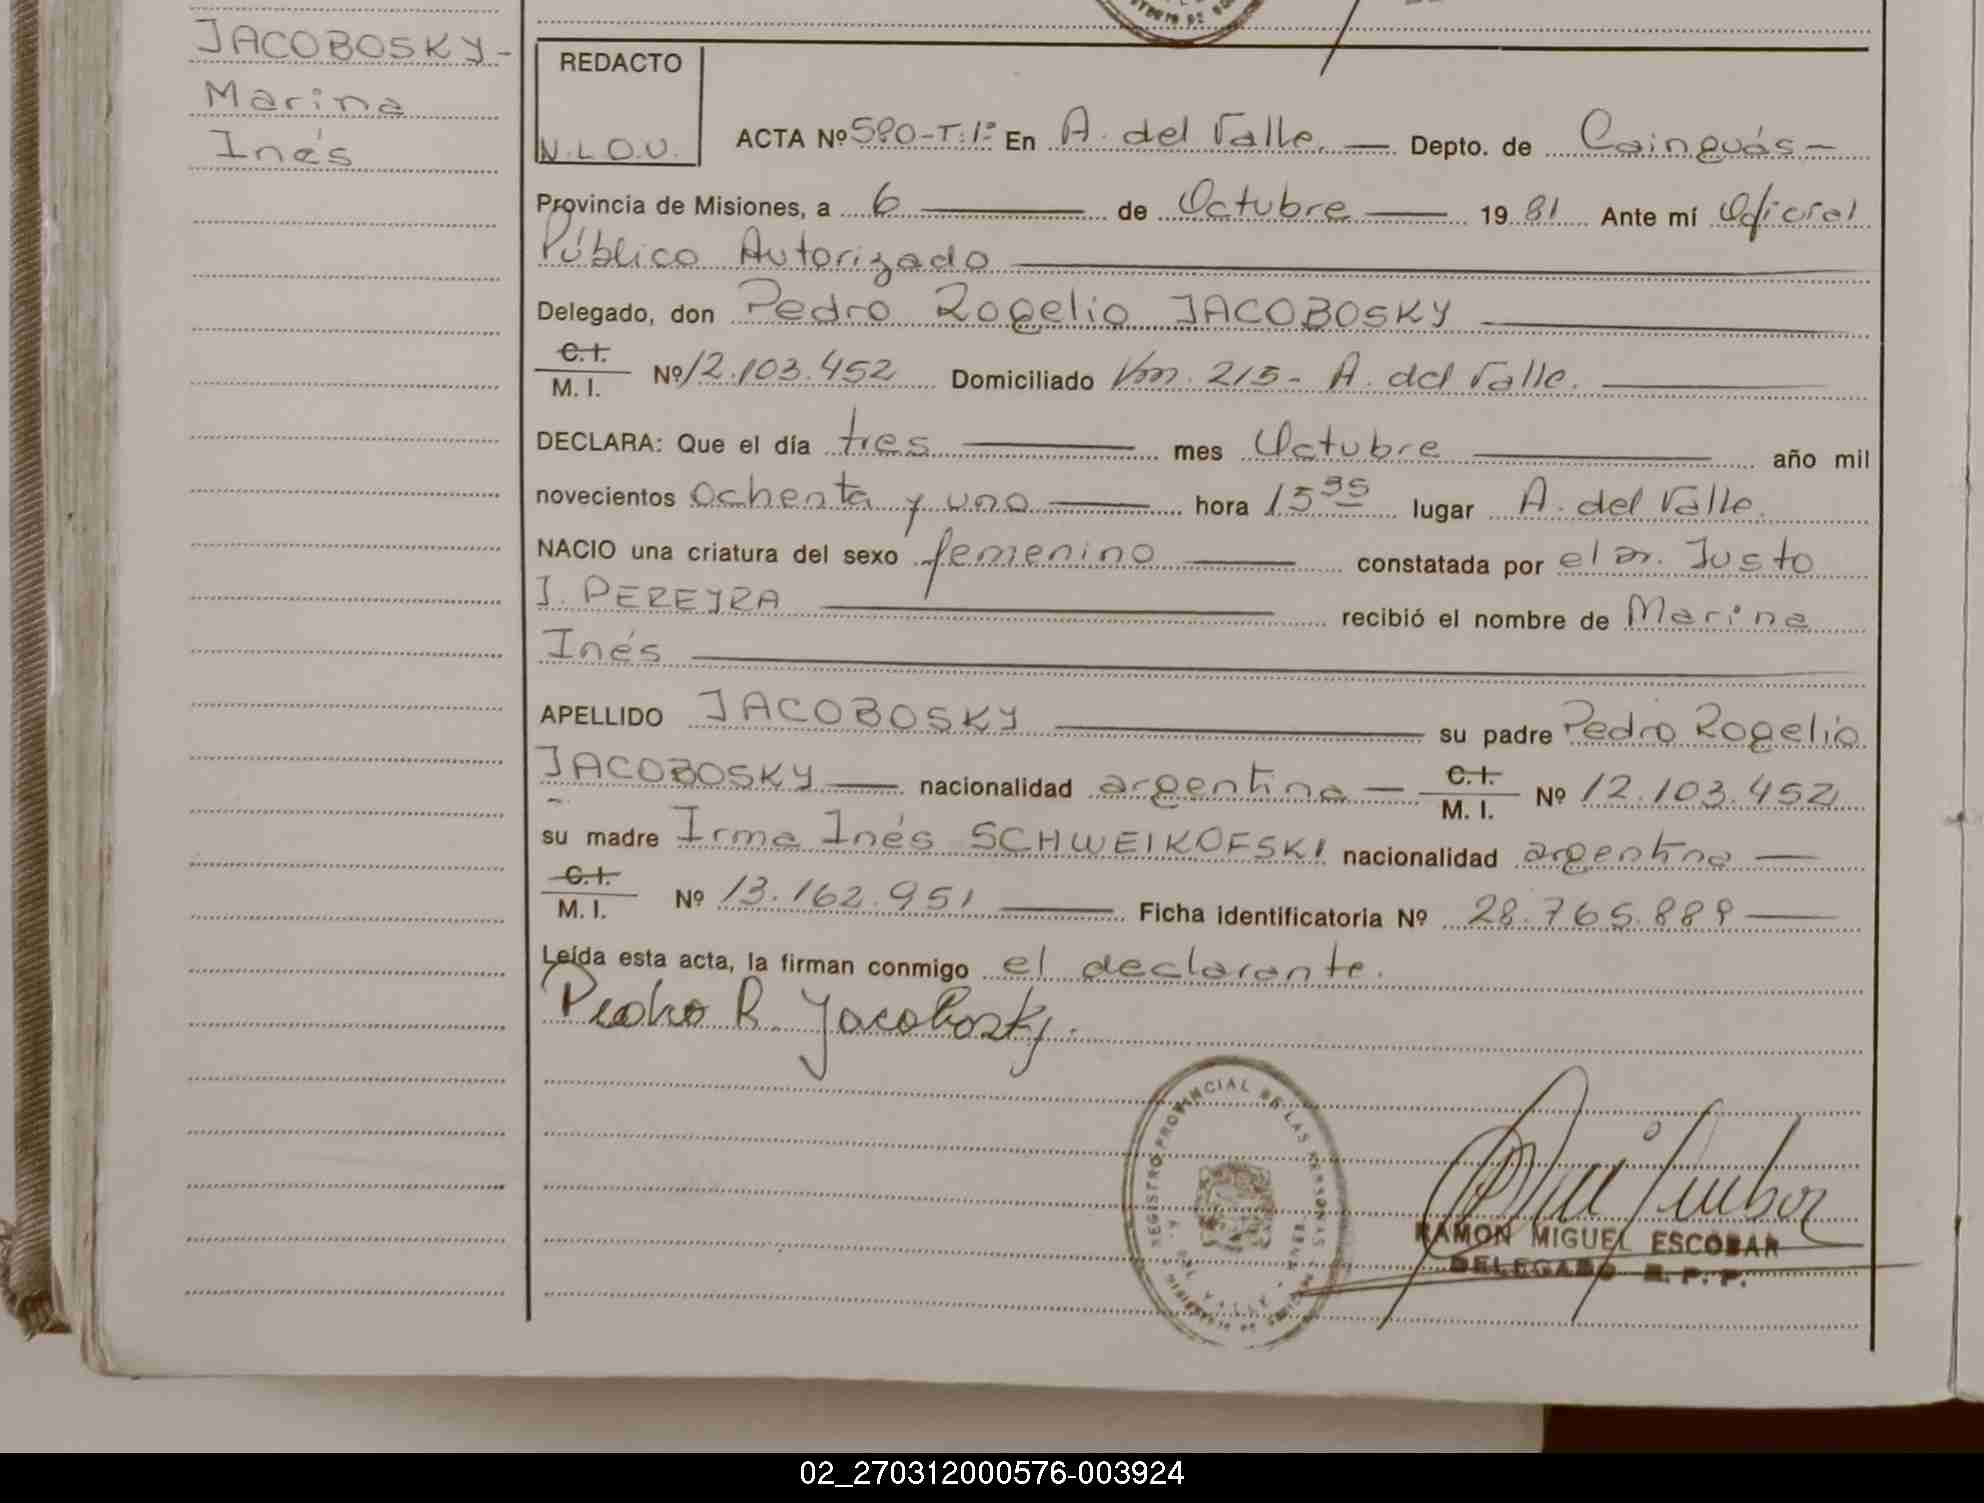 JACOBOSKY-
Marina
Inés
REDACTO
N.L.O.U.
ACTA Nº 590-T:1º En A. del Valle. — Depto. de Cainguás —
Provincia de Misiones, a 6 — de Octubre — 19 81 Ante mí Oficial
Público Autorizado —
Delegado, don Pedro Rogelio JACOBOSKY —
C.I.
M. I. Nº 12.103.452 Domiciliado Km. 215 - A. del Valle. —
DECLARA: Que el día tres — mes Octubre — año mil
novecientos ochenta y uno — hora 15 35 lugar A. del Valle.
NACIO una criatura del sexo femenino — constatada por el Dr. Justo
J. PEREYRA — recibió el nombre de Marina
Inés —
APELLIDO JACOBOSKY — su padre Pedro Rogelio
JACOBOSKY — nacionalidad argentina — C.I. M. I. Nº 12.103.452
su madre Irma Inés SCHWEIKOFSKI nacionalidad argentina —
C.I.
M. I. Nº 13.162.951 — Ficha identificatoria Nº 28.765.889 —
Leída esta acta, la firman conmigo el declarante.
Pedro R. Jacobosky.
REGISTRO PROVINCIAL DE LAS PERSONAS
A. DEL VALLE
RAMON MIGUEL ESCOBAR
DELEGADO R. P. P.
02_270312000576-003924